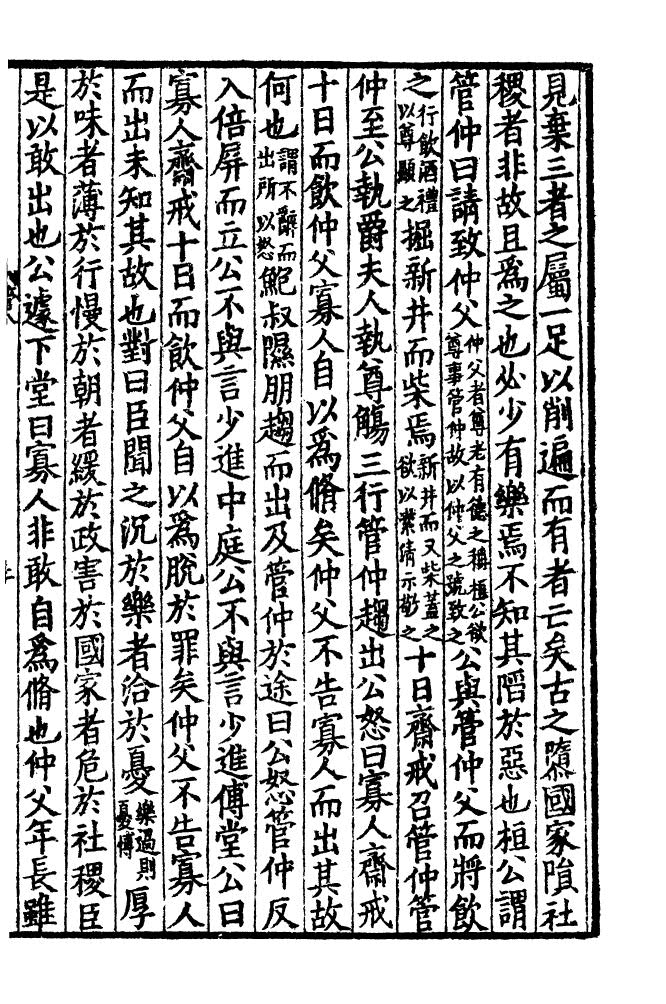 見棄三者之屬一足以削遍而有者亡矣古之隳國家隕社
稷者非故且爲之也必少有樂焉不知其陷於惡也桓公謂
管仲曰請致仲父仲父者尊老有德之稱桓公欲尊事管仲故以仲父之號致之公與管仲父而將飲
之行飲酒禮以尊顯之掘新井而柴焉新井而又柴蓋之欲以絜清示敬之十日齋戒召管仲管
仲至公執爵夫人執尊觴三行管仲趨出公怒曰寡人齋戒
十日而飲仲父寡人自以爲脩矣仲父不告寡人而出其故
何也謂不辭而出所以怒鮑叔隰朋趨而出及管仲於途曰公怒管仲反
入倍屏而立公不與言少進中庭公不與言少進傅堂公曰
寡人齋戒十日而飲仲父自以爲脫於罪矣仲父不告寡人
而出未知其故也對曰臣聞之沉於樂者洽於憂樂過則憂博厚
於味者薄於行慢於朝者緩於政害於國家者危於社稷臣
是以敢出也公遽下堂曰寡人非敢自爲脩也仲父年長雖